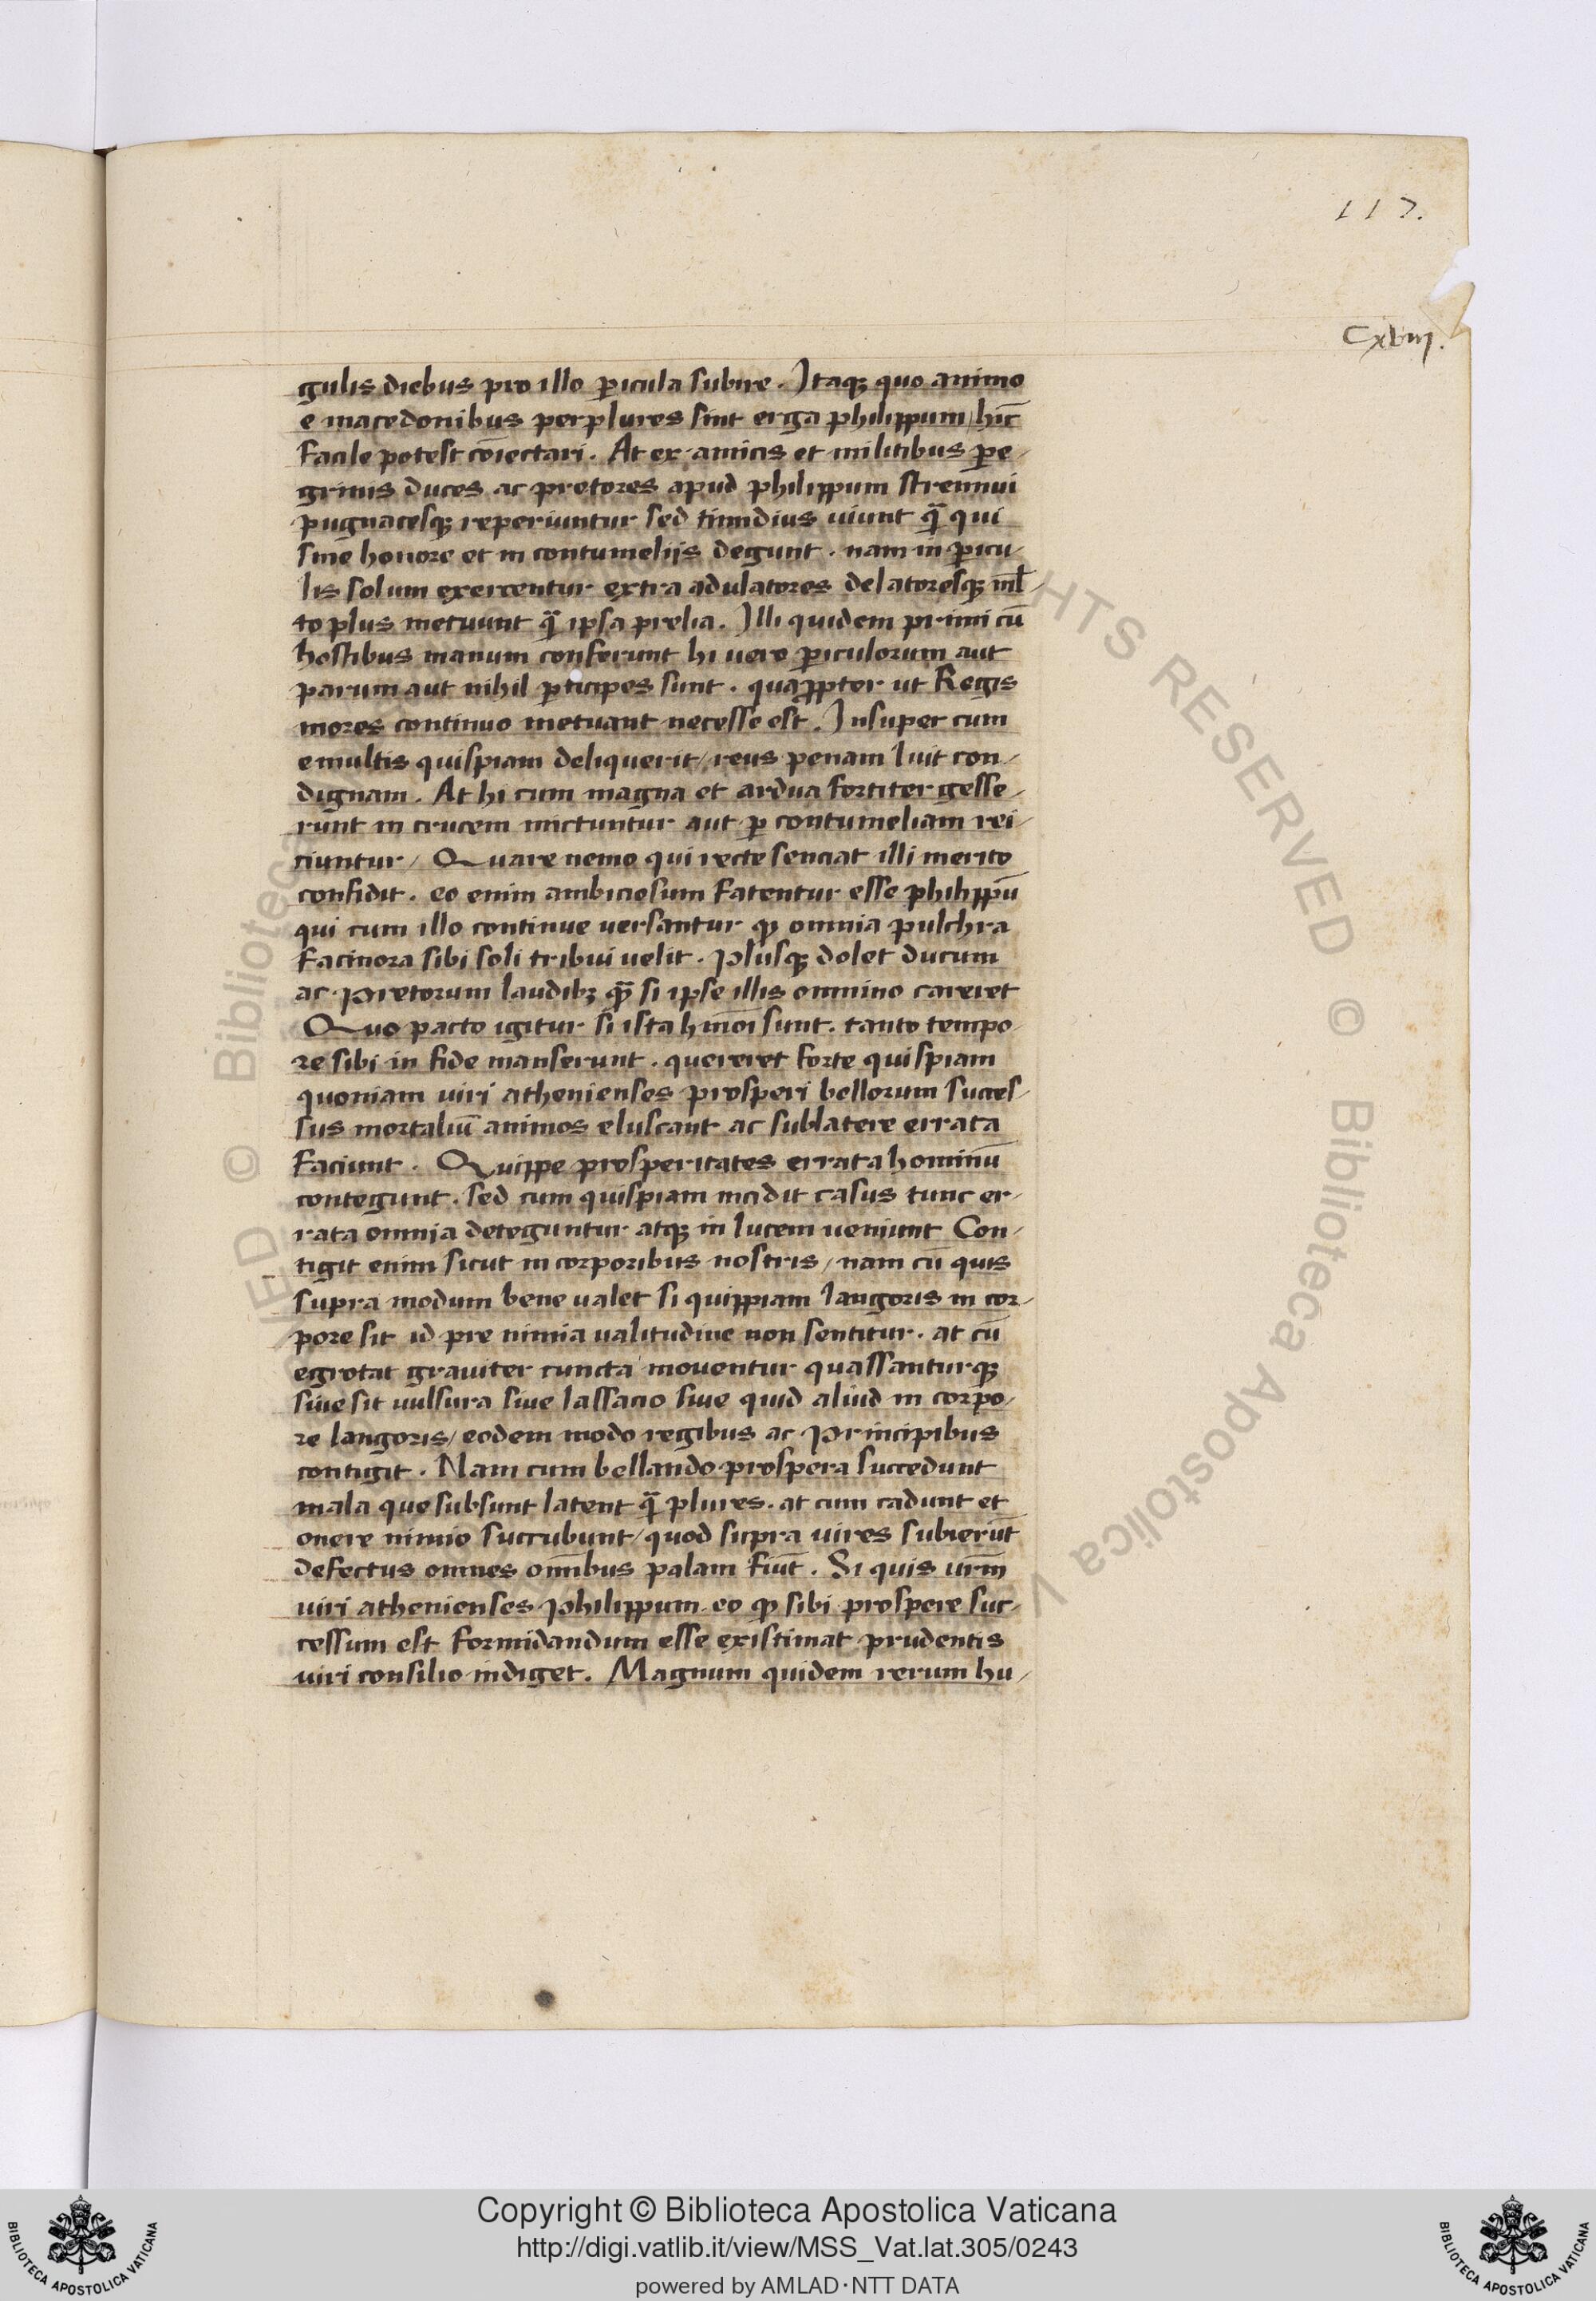 117.
Cxviij.
gulis diebus pro illo p̱icula subire. Itaqȝ quo animo
e macedonibus perplures sint erga philippum/ hic̄
facile potest cōiectari. At ex amicis et militibus p̱e/
grinis duces ac pretores apud philippum strennui
pugnacesqȝ reperiuntur sed timidius uiunt qᷓ qui
sine honore et in contumelijs degunt. nam in p̱icu/
lis solum exercentur extra adulatores delatoresqȝ ml̄/
to plus metuunt qᷓ ipsa prelia. Illi quidem primi cū
hostibus manum conferunt hi uero p̱iculorum aut
parum aut nihil p̱ticipes sunt. quaꝓpter ut Regis
mores continuo metuant necesse est. Insuper cum
e multis quispiam deliquerit/ reus penam luit con/
dignam. At hi cum magna et ardua fortiter gesse/
runt in crucem mictuntur aut p̱ contumeliam rei/
ciuntur/ Quare nemo qui recte senciat illi merito
confidit. eo enim ambiciosum fatentur esse philippū
qui cum illo continue versantur ꝙ omnia pulchra
facinora sibi soli tribui uelit. Plusqȝ dolet ducum
ac Pretorum laudibȝ qᷓ si ipse illis omnino careret
Quo pacto igitur si ista hmōi sunt. tanto tempo
re sibi in fide manserunt. quereret forte quispiam
quoniam uiri athenienses prosperi bellorum succes/
sus mortaliū animos eluscant ac sublatere errata
faciunt. Quippe prosperitates errata hominū
contegunt. sed cum quispiam incidit casus tunc er/
rata omnia deteguntur atqȝ in lucem ueniunt Con/
tigit enim sicut in corporibus nostris/ nam cū quis
supra modum bene ualet si quippiam langoris in cor/
pore sit id pre nimia ualitudine non sentitur. at cū
egrotat grauiter cuncta mouentur quassanturqȝ
siue sit uulsura siue lassacio siue quid aliud in corpo/
re langoris/ eodem modo regibus ac Principibus
contigit. Nam cum bellando prospera succedunt
mala que subsunt latent qᷓ plures. at cum cadunt et
onere nimio succubunt/ quod supra uires subierūt
defectus omnes om̄ibus palam fiūt. Si quis urm̄
uiri athenienses Philippum eo ꝙ sibi prospere suc/
cessum est formidandum esse existimat prudentis
uiri consilio indiget. Magnum quidem rerum hu/
Copyright © Biblioteca Apostolica Vaticana
http://digi.vatlib.it/view/MSS_Vat.lat.305/0243
powered by AMLAD·NTT DATA